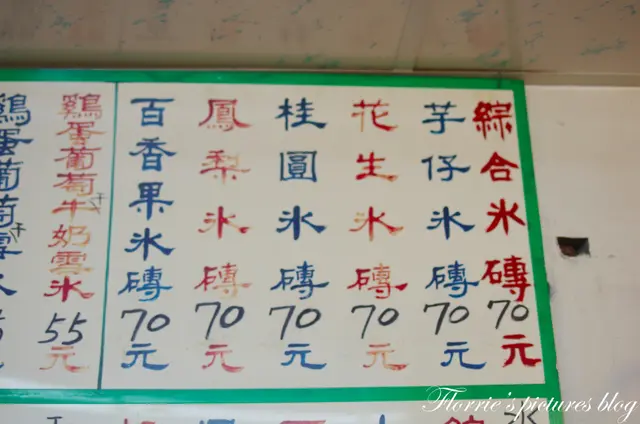 綜合氷磚70元
芋仔氷磚70元
花生氷磚70元
桂圓氷磚70元
鳳梨氷磚70元
百香果氷磚70元
鷄蛋葡萄干牛奶雪氷55元
鷄蛋葡萄干雪
Florrie's pictures blog